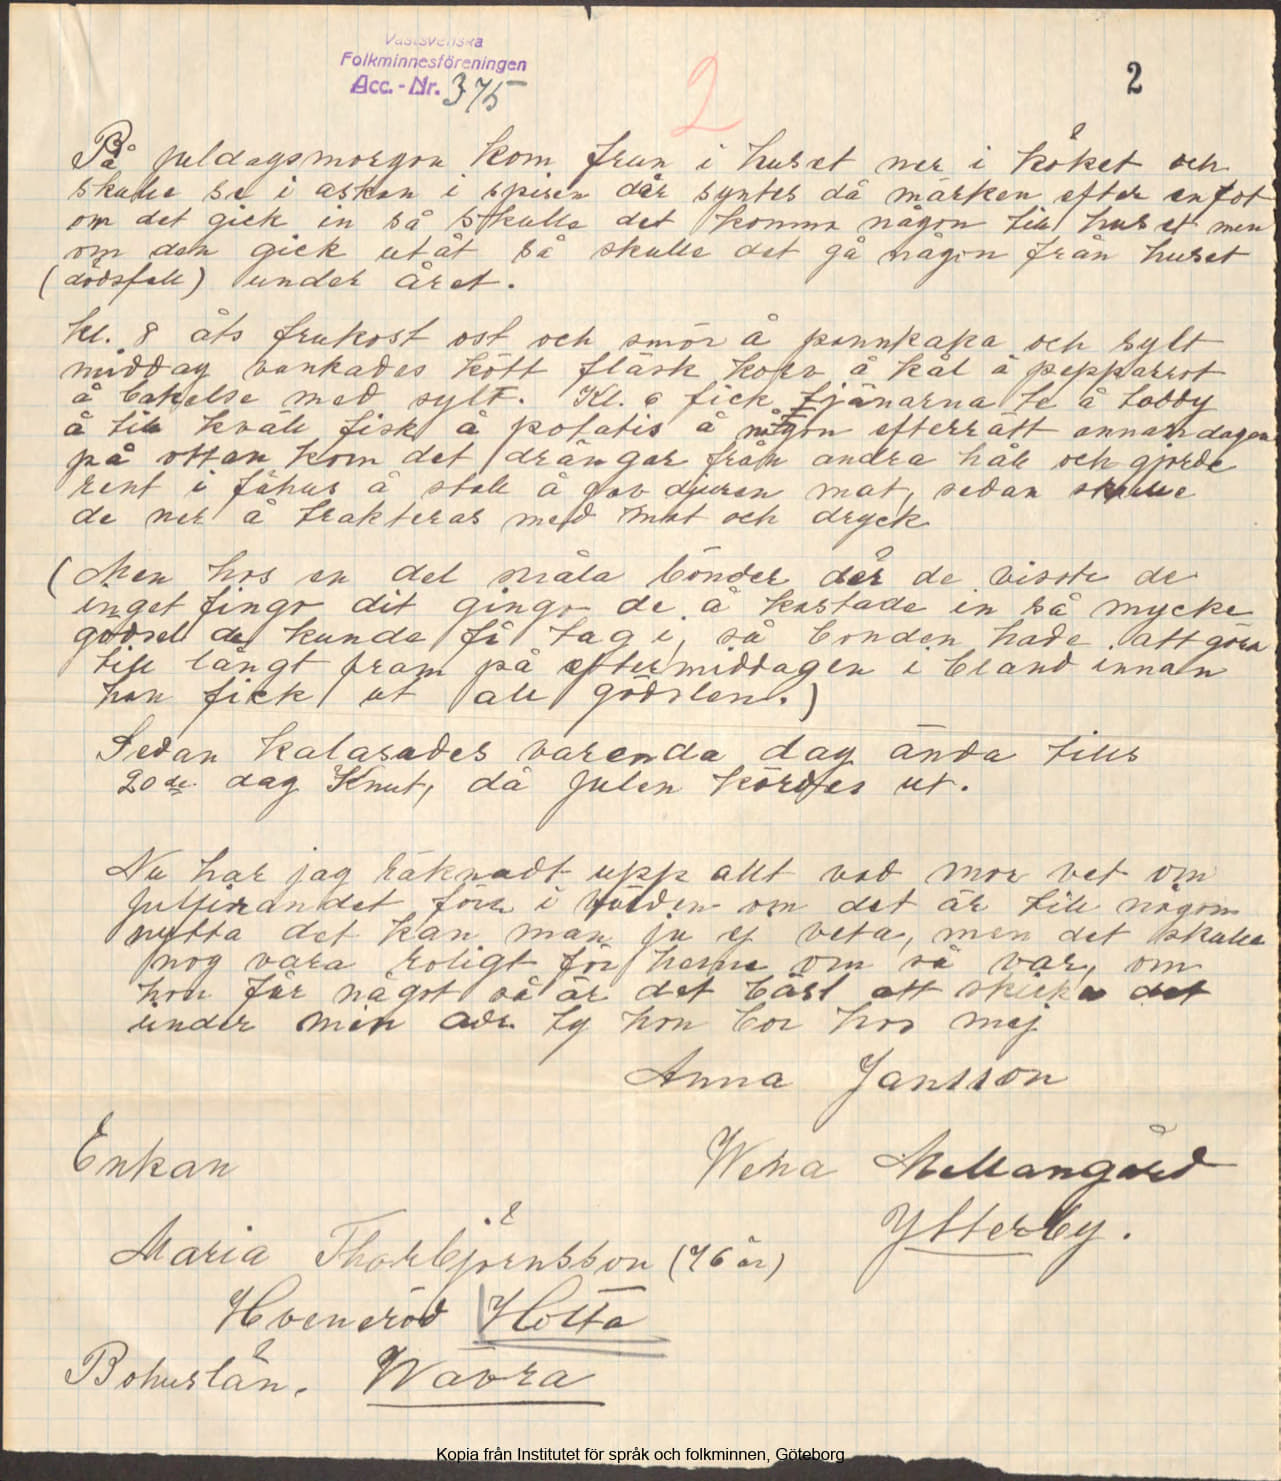 Västsvenska
Folkminnesföreningen
Acc.-Nr. 375
2
2
På juldagsmorgon kom frun i huset ner i köket och
skulle se i askan i spisen där syntes då märken efter en fot
om det gick in så skulle det komma någon till huset men
om den gick utåt så skulle det gå någon från huset
(dödsfall) under året.
Kl. 8 åts frukost ost och smör å pannkaka och sylt
middag vankades kött fläsk korv å kål å pepparrot
å bakelse med sylt. Kl. 6 fick tjänarna te å toddy
å till kväll fisk å potatis å någon efterrätt annandagen
på ottan kom det drängar från andra håll och gjorde
rent i fähus å stall å gav djuren mat, sedan skulle
de ner å trakteras med mat och dryck
(Men hos en del snåla bönder där de visste de
inget fingo dit gingo de å kastade in så mycke
gödsel de kunde få tag i, så bonden hade att göra
till långt fram på eftermiddagen i bland innan
han fick ut all gödslen.)
Sedan kalasades varenda dag ända tills
20de dag Knut, då julen kördes ut.
Nu har jag räknadt upp allt vad mor vet om
julfirandet förr i världen om det är till någon
nytta det kan man ju ej veta, men det skulle
nog vara roligt för henne om så var, om
hon får något så är det bäst att skicka det
under min adr. ty hon bor hos mej
Anna Jansson
Enkan
Wena Mellangård
Ytterby.
Maria Thorbjörnsson (76 år)
Hveneröd Hålta
Bohuslän. Wävra
Kopia från Institutet för språk och folkminnen, Göteborg